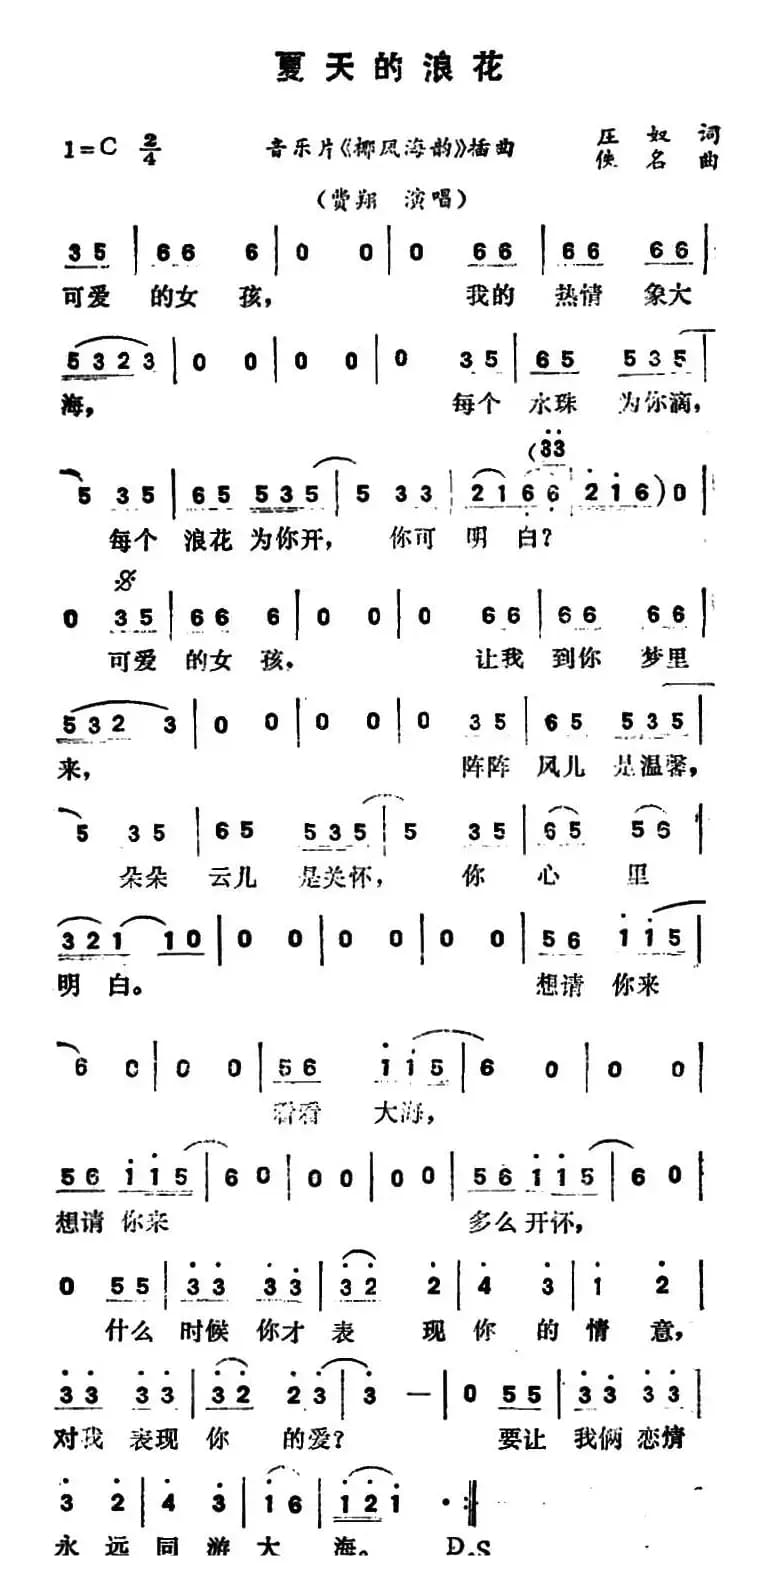 夏天的浪花
1=C 2/4 音乐片《椰风海韵》插曲 庄奴 词
佚名 曲
(费翔 演唱)
35 | 66 6 | 0 0 | 0 66 | 66 66 |
可爱 的女 孩, 我的 热情 象大
5323 | 0 0 | 0 0 | 0 35 | 65 535 |
海, 每个 水珠 为你滴,
(33
5 35 | 65 535 | 5 33 | 2166 | 216) 0 |
每个 浪花 为你开, 你可 明 白?
0 35 | 66 6 | 0 0 | 0 66 | 66 66 |
可爱 的女 孩, 让我 到你 梦里
532 3 | 0 0 | 0 0 | 0 35 | 65 535 |
来, 阵阵 风儿 是温馨,
5 35 | 65 535 | 5 35 | 65 56 |
朵朵 云儿 是关怀, 你 心 里
321 10 | 0 0 | 0 0 | 0 0 | 0 0 | 56 115 |
明 白。 想请 你来
6 0 | 0 0 | 56 115 | 6 0 | 0 0 |
看看 大海,
56 115 | 60 | 00 | 00 | 56 115 | 60 |
想请 你来 多么 开怀,
0 55 | 33 33 | 32 2 | 4 3 | 1 2 |
什么 时候 你才 表 现 你 的 情 意,
33 33 | 32 23 | 3 — | 0 55 | 33 33 |
对我 表现 你 的爱? 要让 我俩 恋情
3 2 | 4 3 | 1 6 | 121 · :||
永 远 同 游 大 海。 D.S